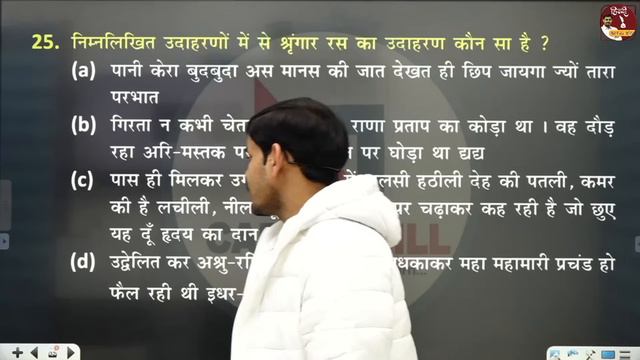 25. निम्नलिखित उदाहरणों में से श्रृंगार रस का उदाहरण कौन सा है ?
(a) पानी केरा बुदबुदा अस मानस की जात देखत ही छिप जायगा ज्यों तारा
परभात
(b) गिरता न कभी राणा प्रताप का कोड़ा था । वह दौड़
रहा अरि-मस्तक पर घोड़ा था द्यद्य
(c) पास ही मिलकर हठीली देह की पतली, कमर
की है लचीली, चढ़ाकर कह रही है जो छुए
यह दूँ हृदय का दान
(d) उद्वेलित कर अश्रु- महा महामारी प्रचंड हो
फैल रही थी इधर-